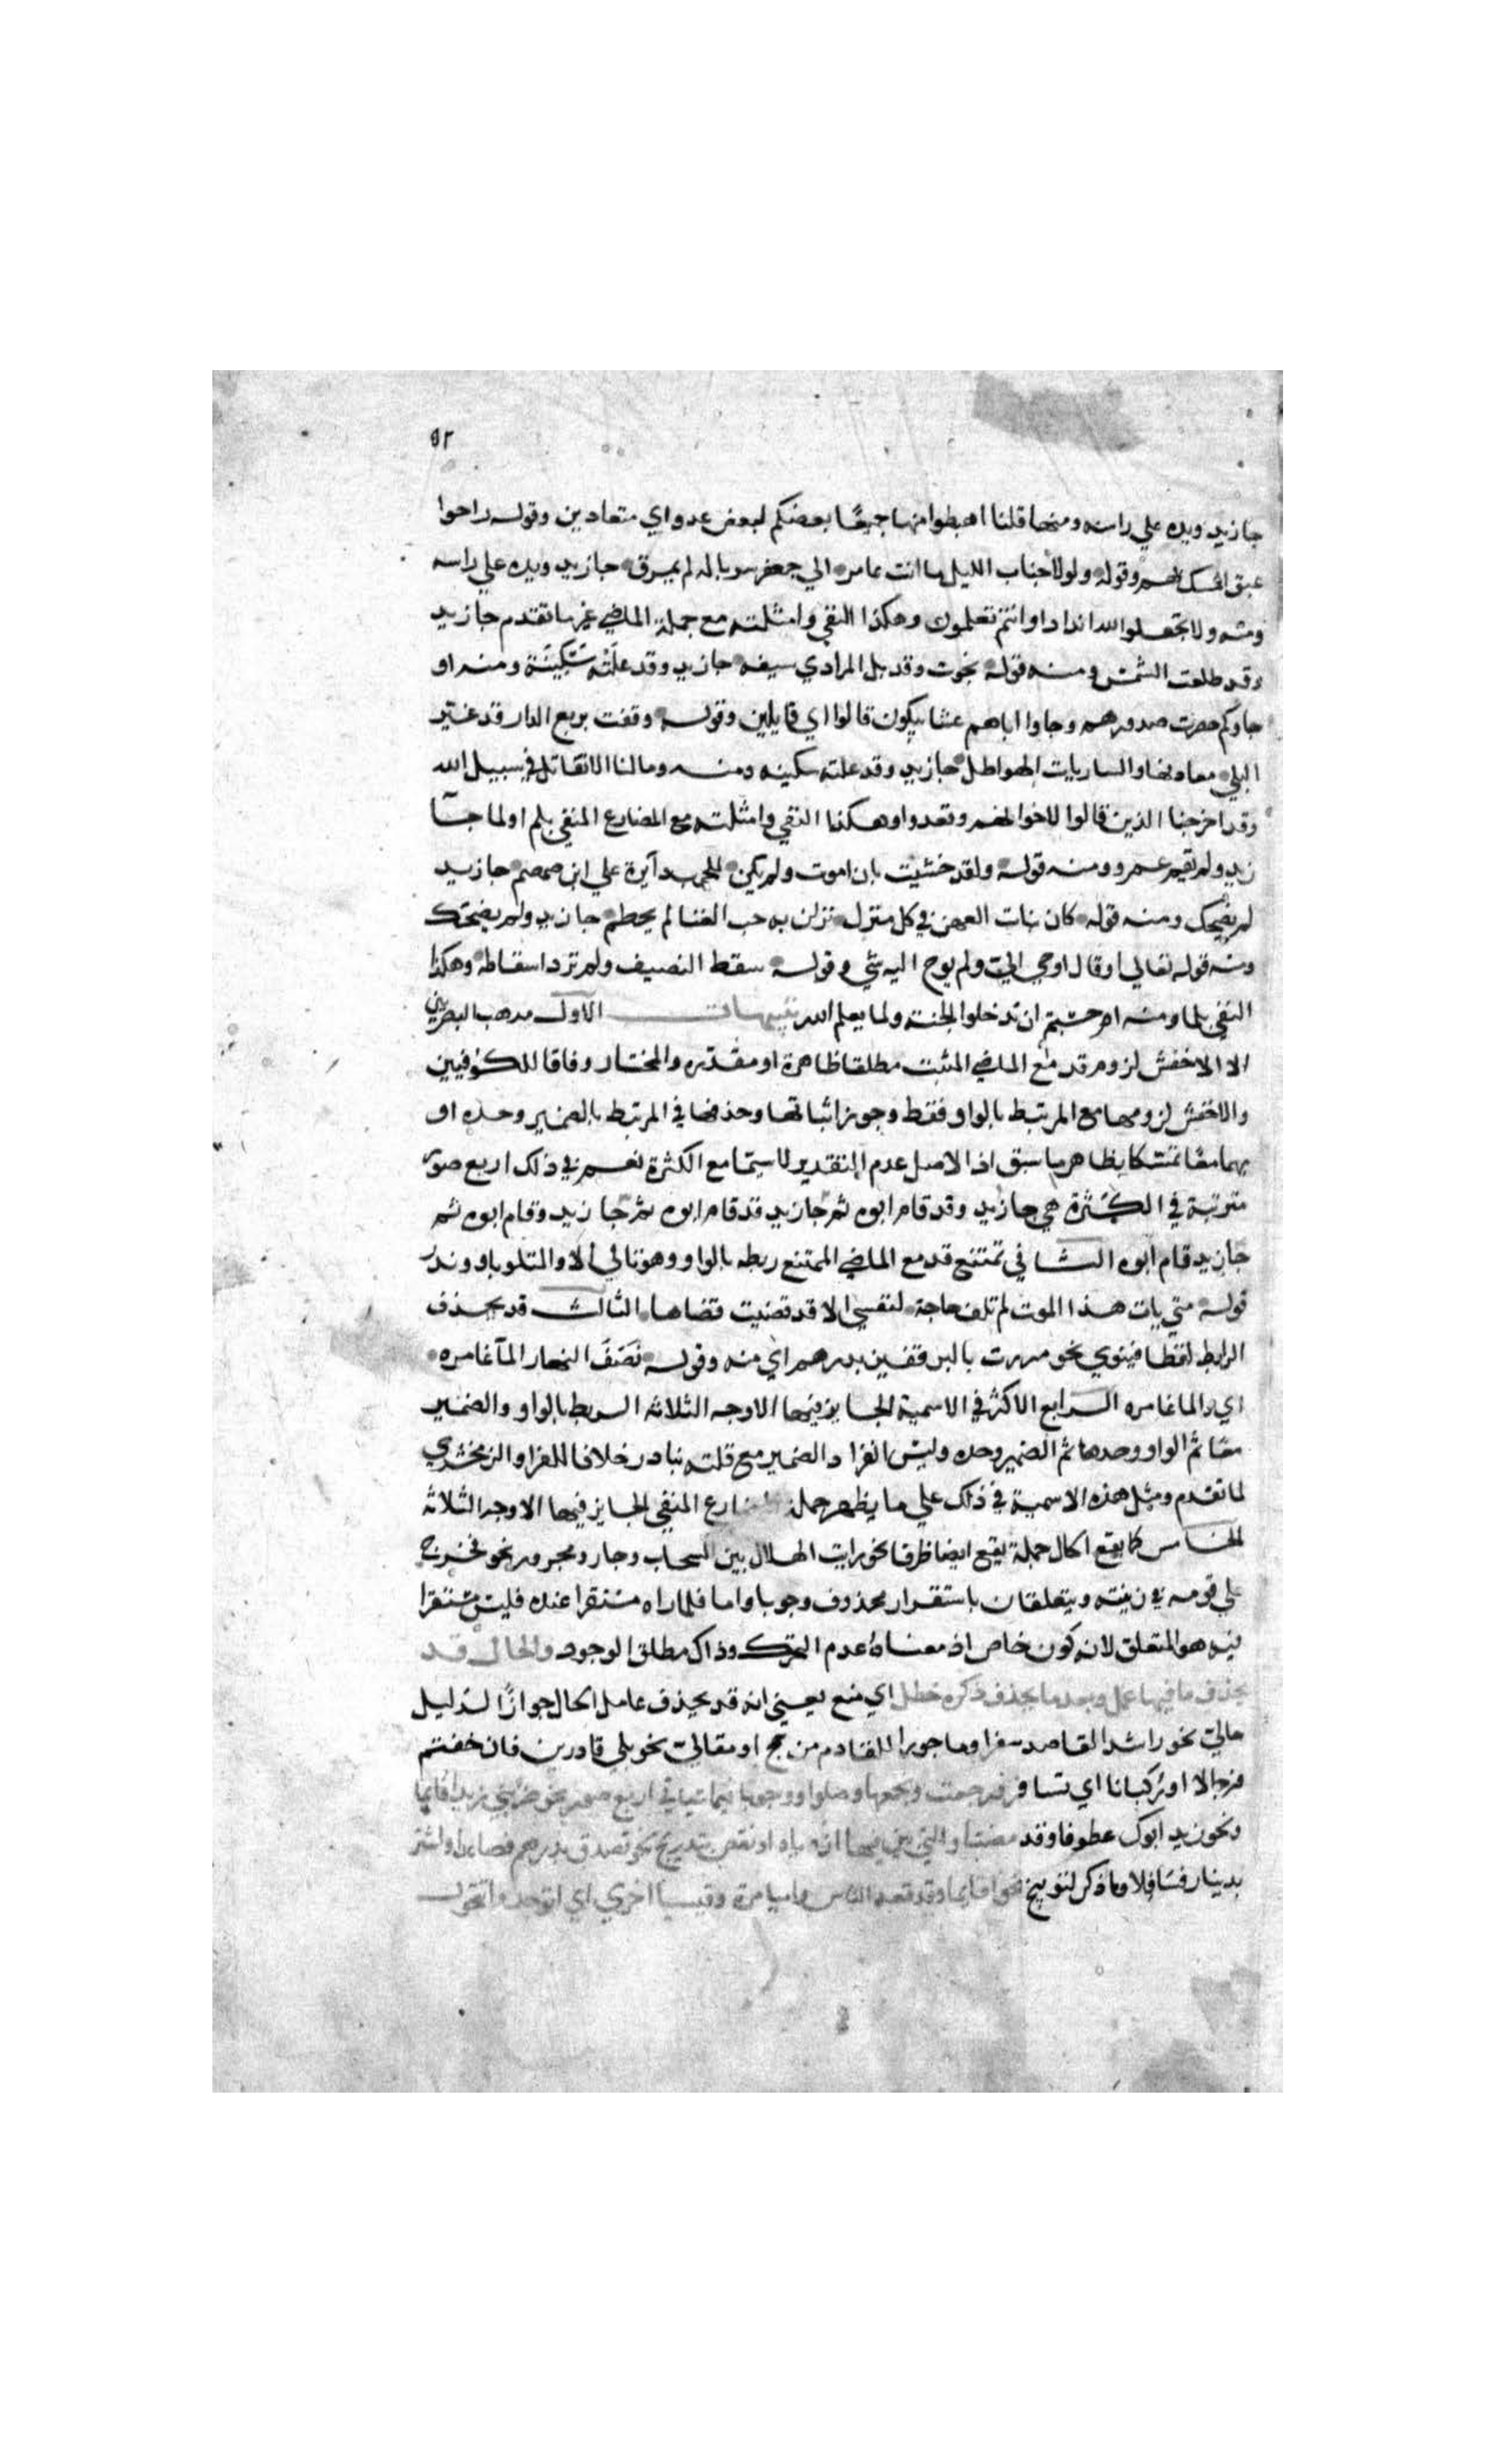 ٥٢
جا زيد ويده علي راسه ومنها قلنا اهبطوا منها جميعًا بعضكم لبعض عدو اي متعادين وقوله راحوا
عبق المسك بهم وقوله ولولا جنان الليل ما انت عامر الي جعفر سرباله لم يمزق جا زيد ويده علي راسه
ومنه ولا تجعلوا لله اندادا وانتم تعلمون وهكذا النفي وامثلته مع جملة الماضي غير ما تقدم جا زيد
وقد طلعت الشمس ومنه قوله نجوت وقد بل المرادي سيفه جا زيد وقد علته سَكِينَة ومنه او
جاوكم حصرت صدورهم وجاوا اباهم عشا يبكون قالوا اي قايلين وقوله وقفت بربع الدار قد غير
البلي معارفها والساريات الهواطل جا زيد وقد علته سكينه ومنه وما لنا الا نقاتل في سبيل الله
وقد اخرجنا الذين قالوا لاخوانهم وقعدوا وهكذا النفي وامثلته مع المضارع المنفي بلم او لما جا
زيد ولم يقم عمرو ومنه قوله ولقد خشيت بان اموت ولم تكن للحرب دايرة علي ابن ضمضم جا زيد
لم يضحك ومنه قوله كان فتات العهن في كل منزل نزلن به حب الفنا لم يحطم جا زيد ولم يضحك
ومنه قوله تعالي او قال اوحي الي ولم يوح اليه شي وقوله سقط النصيف ولم ترد اسقاطه وهكذا
النفي بلما ومنه ام حسبتم ان تدخلوا الجنة ولما يعلم الله تنبيهات الاول مذهب البصريين
الا الاخفش لزوم قد مع الماضي المثبت مطلقا ظاهرة او مقدره والمختار وفاقا للكوفيين
والاخفش لزومها مع المرتبط بالواو فقط وجواز اثباتها وحذفها في المرتبط بالضمير وحده او
بهما معًا تمسكا بظاهر ما سبق اذ الاصل عدم التقدير لا سيما مع الكثرة نعم في ذلك اربع صور
مترتبة في الكثرة هي جا زيد وقد قام ابوه ثم جا زيد قد قام ابوه ثم جا زيد وقام ابوه ثم
جا زيد قام ابوه الثاني تمتنع قد مع الماضي الممتنع ربطه بالواو وهو تالي الا والمتلو باو وندر
قوله متي يات هذا الموت لم تلف حاجة لنفسي الا قد قضيت قضاها الثالث قد يحذف
الرابط لفظا فينوي نحو مررت بالبر قفيز بدرهم اي منه وقوله نَصَفَ النهار المآ غامره
اي والما غامره الرابع الاكثر في الاسمية الجايز فيها الاوجه الثلاثه الربط بالواو والضمير
معًا ثم الواو وحدها ثم الضمير وحده وليس انفراد الضمير مع قلته بنادر خلافا للفرا والزمخشري
لما تقدم ومثل هذه الاسمية في ذلك علي ما يظهر جملة المضارع المنفي الجايز فيها الاوجه الثلاثه
الخامس كما يقع الحال جملة يقع ايضا ظرفا نحو رايت الهلال بين السحاب وجار ومجرور نحو فخرج
علي قومه في زينته ويتعلقان باستقرار محذوف وجوبا واما فلما راه مستقرا عنده فليس مستقرا
فيه هو المتعلق لانه كون خاص اذ معناهُ عدم التحرك وذاك مطلق الوجود والحال قد
يحذف ما فيها عمل وبعد ما يحذف ذكره حظل اي منع يعني انه قد يحذف عامل الحال جوازًا لدليل
حالي نحو راشدا للقاصد سفرا وماجورا للقادم من حج او مقالي نحو بلي قادرين فان خفتم
فرجالا او ركبانا اي تسافر ورجعت ونجمعها وصلوا ووجوبا قياسا في اربع صور نحو ضربي زيدا قايما
ونحو زيد ابوك عطوفا وقد مضتا والتي بين فيها ازدياد او نقص بتدريج نحو تصدق بدرهم فصاعدا واشتر
بدينار فسافلا وما ذكر لتوبيخ نحو اقايما وقد قعد الناس واتميميا مرة وقيسيا اخري اي اتوجد واتتحول